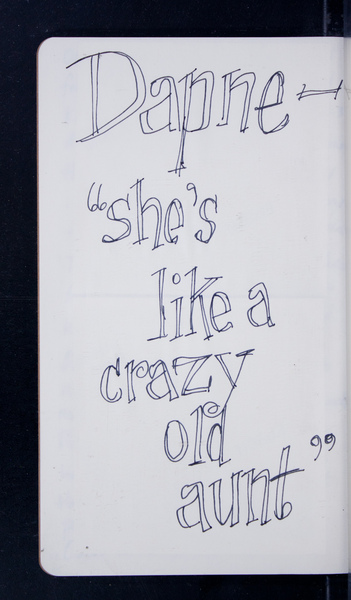 Dapne—
“she's
like a
crazy
old
aunt”